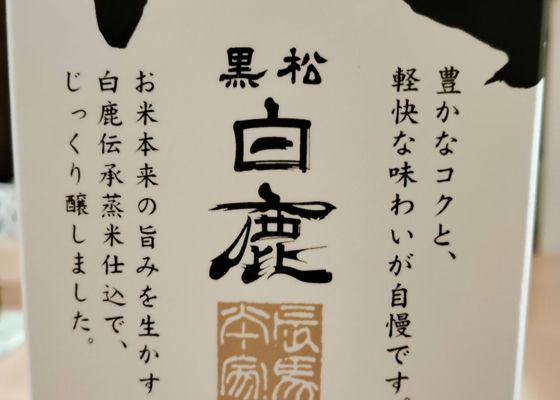 豊かなコクと、
軽快な味わいが自慢です。
黒松
白鹿
辰馬
本家
お米本来の旨みを生かす
白鹿伝承蒸米仕込で、
じっくり醸しました。